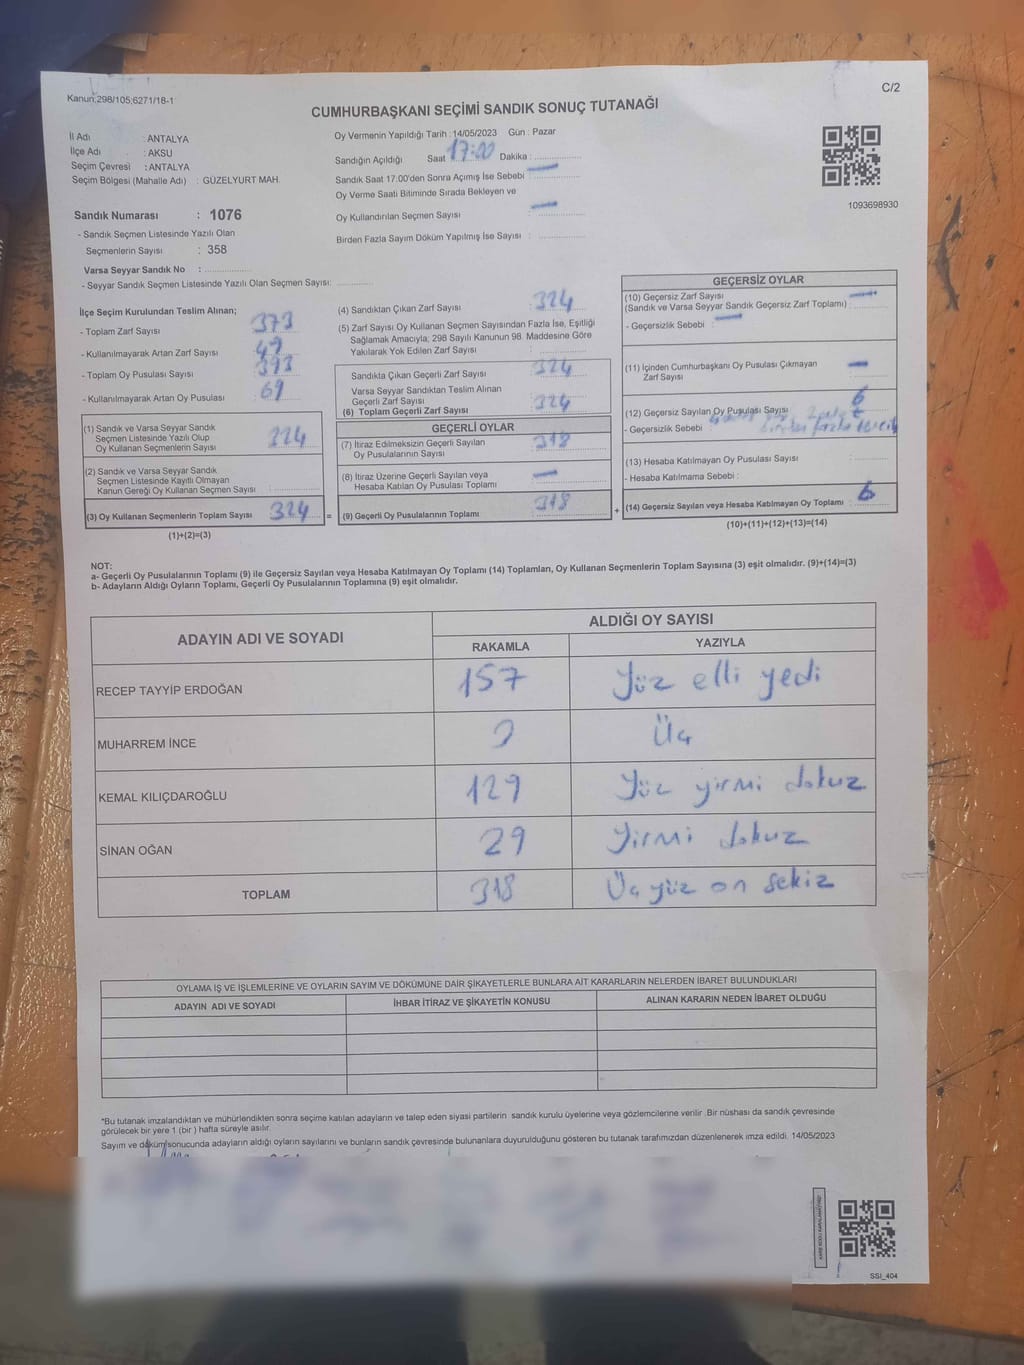 Kanun:298/105;6271/18-1
C/2
CUMHURBAŞKANI SEÇİMİ SANDIK SONUÇ TUTANAĞI
İl Adı : ANTALYA
İlçe Adı : AKSU
Seçim Çevresi : ANTALYA
Seçim Bölgesi (Mahalle Adı) : GÜZELYURT MAH.
Sandık Numarası : 1076
- Sandık Seçmen Listesinde Yazılı Olan
Seçmenlerin Sayısı : 358
Varsa Seyyar Sandık No :
- Seyyar Sandık Seçmen Listesinde Yazılı Olan Seçmen Sayısı:
Oy Vermenin Yapıldığı Tarih : 14/05/2023 Gün : Pazar
Sandığın Açıldığı Saat 17:00 Dakika :
Sandık Saat 17.00'den Sonra Açımış İse Sebebi :
Oy Verme Saati Bitiminde Sırada Bekleyen ve
Oy Kullandırılan Seçmen Sayısı :
Birden Fazla Sayım Döküm Yapılmış İse Sayısı :
1093698930
İlçe Seçim Kurulundan Teslim Alınan;
- Toplam Zarf Sayısı 373
- Kullanılmayarak Artan Zarf Sayısı 49
- Toplam Oy Pusulası Sayısı 393
- Kullanılmayarak Artan Oy Pusulası 69
(1) Sandık ve Varsa Seyyar Sandık
Seçmen Listesinde Yazılı Olup
Oy Kullanan Seçmenlerin Sayısı 324
(2) Sandık ve Varsa Seyyar Sandık
Seçmen Listesinde Kayıtlı Olmayan
Kanun Gereği Oy Kullanan Seçmen Sayısı
(3) Oy Kullanan Seçmenlerin Toplam Sayısı 324 =
(1)+(2)=(3)
(4) Sandıktan Çıkan Zarf Sayısı : 324
(5) Zarf Sayısı Oy Kullanan Seçmen Sayısından Fazla İse, Eşitliği
Sağlamak Amacıyla; 298 Sayılı Kanunun 98. Maddesine Göre
Yakılarak Yok Edilen Zarf Sayısı :
Sandıkta Çıkan Geçerli Zarf Sayısı 324
Varsa Seyyar Sandıktan Teslim Alınan
Geçerli Zarf Sayısı
(6) Toplam Geçerli Zarf Sayısı 324
GEÇERLİ OYLAR
(7) İtiraz Edilmeksizin Geçerli Sayılan
Oy Pusulalarının Sayısı 318
(8) İtiraz Üzerine Geçerli Sayılan veya
Hesaba Katılan Oy Pusulası Toplamı
(9) Geçerli Oy Pusulalarının Toplamı 318 +
GEÇERSİZ OYLAR
(10) Geçersiz Zarf Sayısı
(Sandık ve Varsa Seyyar Sandık Geçersiz Zarf Toplamı)
- Geçersizlik Sebebi :
(11) İçinden Cumhurbaşkanı Oy Pusulası Çıkmayan
Zarf Sayısı
(12) Geçersiz Sayılan Oy Pusulası Sayısı 6
- Geçersizlik Sebebi : birden fazla tercih
(13) Hesaba Katılmayan Oy Pusulası Sayısı
- Hesaba Katılmama Sebebi :
(14) Geçersiz Sayılan veya Hesaba Katılmayan Oy Toplamı : 6
(10)+(11)+(12)+(13)=(14)
NOT:
a- Geçerli Oy Pusulalarının Toplamı (9) ile Geçersiz Sayılan veya Hesaba Katılmayan Oy Toplamı (14) Toplamları, Oy Kullanan Seçmenlerin Toplam Sayısına (3) eşit olmalıdır. (9)+(14)=(3)
b- Adayların Aldığı Oyların Toplamı, Geçerli Oy Pusulalarının Toplamına (9) eşit olmalıdır.
ADAYIN ADI VE SOYADI ALDIĞI OY SAYISI
RAKAMLA YAZIYLA
RECEP TAYYİP ERDOĞAN 157 Yüz elli yedi
MUHARREM İNCE 3 Üç
KEMAL KILIÇDAROĞLU 129 Yüz yirmi dokuz
SİNAN OĞAN 29 Yirmi dokuz
TOPLAM 318 Üç yüz on sekiz
OYLAMA İŞ VE İŞLEMLERİNE VE OYLARIN SAYIM VE DÖKÜMÜNE DAİR ŞİKAYETLERLE BUNLARA AİT KARARLARIN NELERDEN İBARET BULUNDUKLARI
ADAYIN ADI VE SOYADI İHBAR İTİRAZ VE ŞİKAYETİN KONUSU ALINAN KARARIN NEDEN İBARET OLDUĞU
*Bu tutanak imzalandıktan ve mühürlendikten sonra seçime katılan adayların ve talep eden siyasi partilerin sandık kurulu üyelerine veya gözlemcilerine verilir .Bir nüshası da sandık çevresinde
görülecek bir yere 1 (bir ) hafta süreyle asılır.
Sayım ve döküm sonucunda adayların aldığı oyların sayılarını ve bunların sandık çevresinde bulunanlara duyurulduğunu gösteren bu tutanak tarafımızdan düzenlenerek imza edildi. 14/05/2023
SSI_404